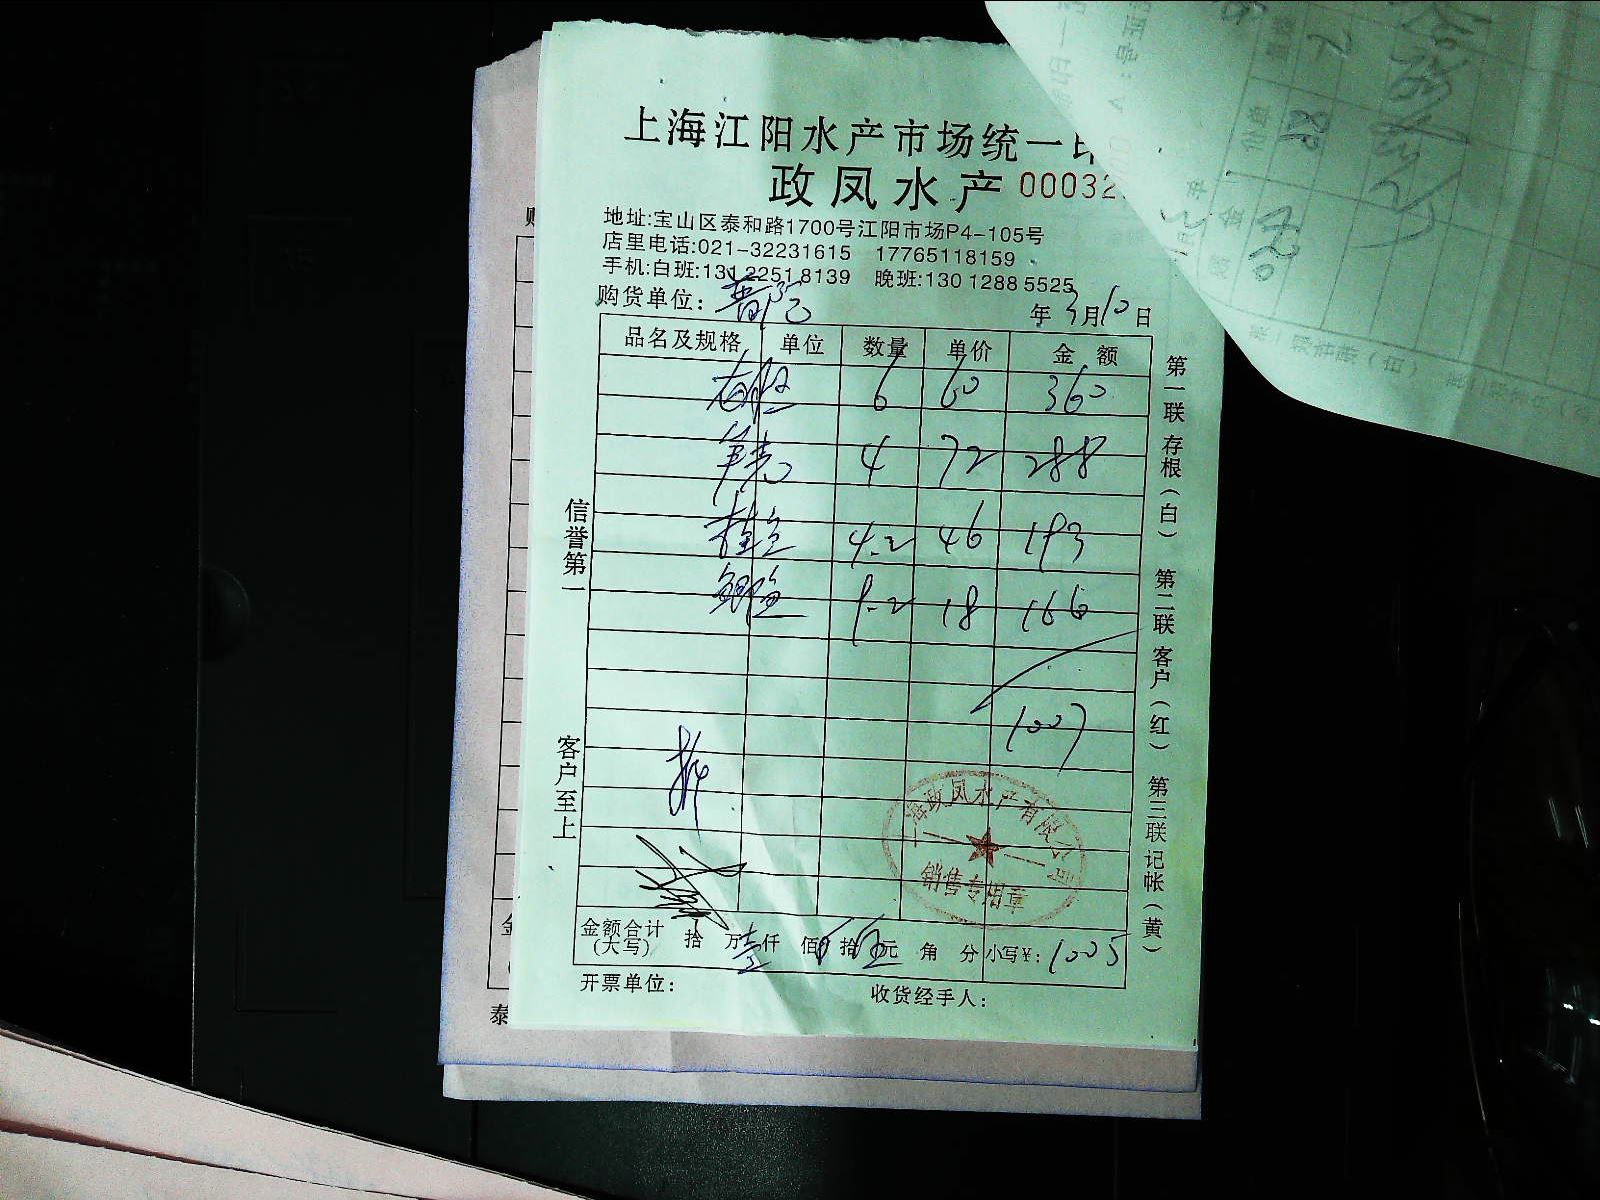 上海江阳水产市场统一
政凤水产 00032
地址:宝山区泰和路1700号江阳市场P4-105号
店里电话:021-32231615 17765118159
手机:白班:131 2251 8139 晚班:130 1288 5525
购货单位:
年 3 月 10 日
品名及规格 单位 数量 单价 金额
6 60 360
4 72 288
桂鱼 4.2 46 193
鲫鱼 9.2 18 166
1007
信誉第一
客户至上
第一联 存根(白) 第二联 客户(红) 第三联 记帐(黄)
海政凤水产有限公司
销售专用章
金额合计(大写) 拾 万 壹 仟 佰 拾 伍 元 角 分 小写¥: 1005
开票单位: 收货经手人: